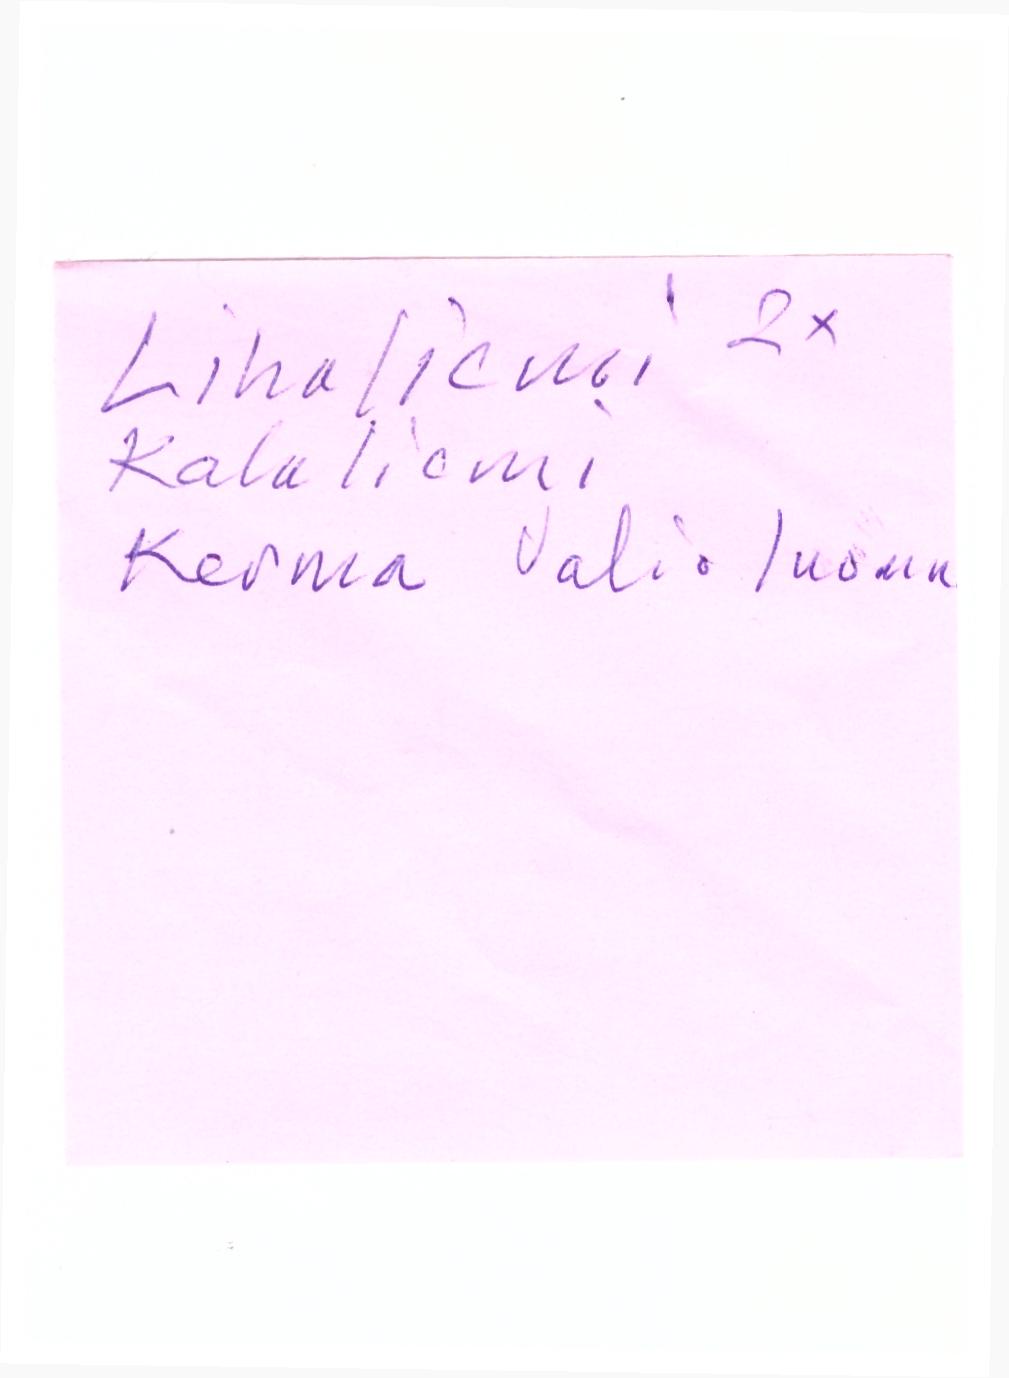 Lihaliemi 2x
Kalaliemi
Kerma Valio luomu